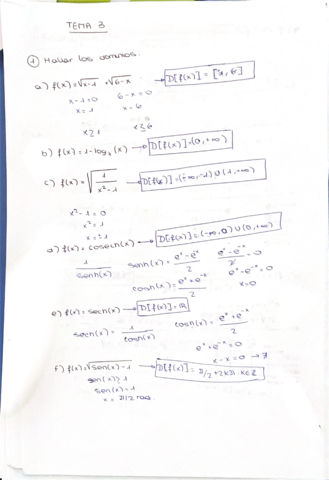 TEMA 3
① Hallar los dominios:
a) f(x)=√x-1 +√6-x → D[f(x)] = [1, 6]
x-1=0 6-x=0
x=1 x=6
x≥1 x≤6
b) f(x)=1-log₄(x) → D[f(x)]=(0,+∞)
c) f(x)=√1/x²-1 → D[f(x)]=(-∞,-1)∪(1,+∞)
x²-1=0
x²=1
x=±1
d) f(x)=cosech(x) → D[f(x)]=(-∞,0)∪(0,+∞)
1/senh(x) senh(x)= eˣ-e⁻ˣ/2 eˣ-e⁻ˣ/2=0
cosh(x)= eˣ+e⁻ˣ/2 eˣ-e⁻ˣ=0
x=0
e) f(x)=sech(x) → D[f(x)]=ℝ
sech(x)= 1/cosh(x) cosh(x)= eˣ+e⁻ˣ/2
eˣ+e⁻ˣ=0
x-x=0 → ∄
f) f(x)=√sen(x)-1 → D[f(x)]= π/2+2kπ k∈ℤ
sen(x)≥1
sen(x)=1
x=π/2 rad.